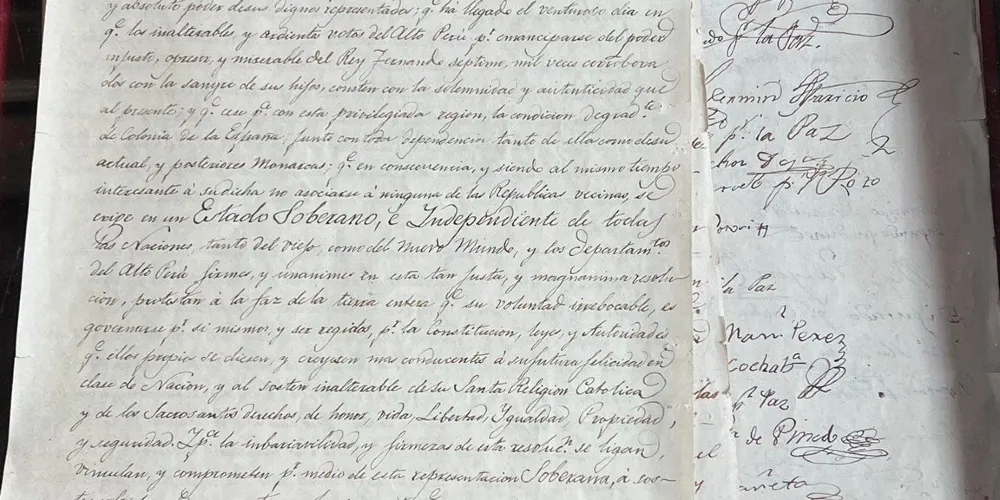 y absoluto poder de sus dignos representados; q.e ha llegado el venturoso dia en
q.e los inalterables, y ardiente votos del Alto Perú p.r emanciparse del poder
injusto, opresor, y miserable del Rey Fernando septimo, mil veces corrobora
dos con la sangre de sus hijos, consten con la solemnidad y autenticidad que
al presente; y q.e cese p.a con esta privilegiada region, la condicion degrad.te
de Colonia de la España, junto con toda dependencia tanto de ella como de su
actual, y posteriores Monarcas; q.e en consecuencia, y siendo al mismo tiempo
interesante á su dicha no asociarse á ninguna de las Republicas vecinas, se
erige en un Estado Soberano, é Independiente de todas
las Naciones, tanto del viejo como del Nuevo Mundo, y los Departam.tos
del Alto Perú firmes, y unanimes en esta tan justa, y magnanima resolu
cion, protestan á la faz de la tierra entera q.e su voluntad irrebocable, es
governarse p.r si mismos, y ser regidos, p.r la Constitucion, leyes, y Autoridades
q.e ellos propios se diesen, y creyesen mas conducentes á su futura felicidad en
clase de Nacion, y al sosten inalterable de su Santa Religion Catolica
y de los Sacrosantos derechos, de honor, vida, Libertad, Ygualdad, Propiedad,
y seguridad. Y p.a la imbariavilidad, y firmeza de esta resoluc.n se ligan,
vinculan, y comprometen p.r medio de esta representacion Soberana, á sos-
p.r la Paz.
Aparicio
p.r la Paz
la Paz
Man.l Perez
Cochab.a
p.r la Paz
de Pinedo